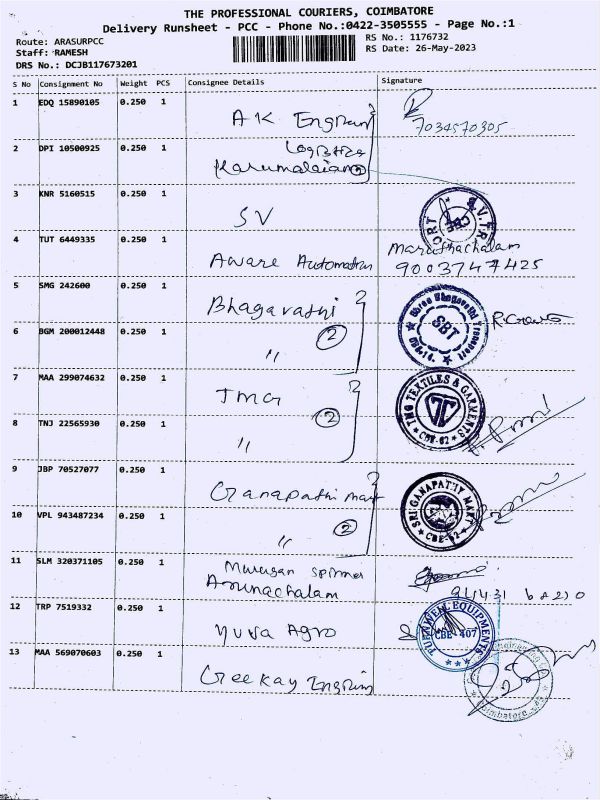 THE PROFESSIONAL COURIERS, COIMBATORE
Delivery Runsheet - PCC - Phone No.:0422-3505555 - Page No.:1
Route: ARASURPCC
RS No.: 1176732
Staff: RAMESH
RS Date: 26-May-2023
DRS No.: DCJB117673201
S No Consignment No Weight PCS Consignee Details Signature
1 EDQ 15890105 0.250 1 AK
7034570305
2 DPI 10500925 0.250 1
3 KNR 5160515 0.250 1 SV
4 TUT 6449335 0.250 1 Aware Automation Maruthachalam
9003747425
5 SMG 242600 0.250 1 Bhagavathi
Shree Bhagavathi Transport SBT
6 BGM 200012448 0.250 1 " 2
7 MAA 299074632 0.250 1 TMG
TMG TEXTILES & GARMENTS CBE-62
8 TNJ 22565930 0.250 1 " 2
9 JBP 70527077 0.250 1 Ganapathi mart
SRI GANAPATHY MART CBE-62
10 VPL 943487234 0.250 1 " 2
11 SLM 320371105 0.250 1 Murugan
Arunachalam
12 TRP 7519332 0.250 1 Yuva Agro
EQUIPMENTS CBE-407
13 MAA 569070603 0.250 1 Geekay
Coimbatore